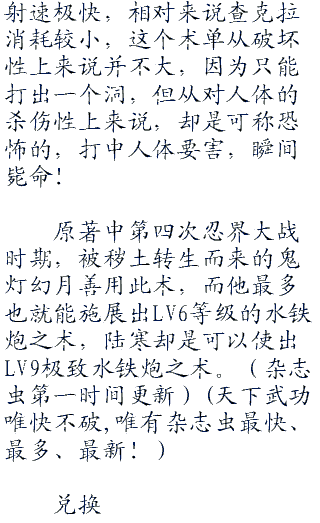 射速极快，相对来说查克拉
消耗较小，这个术单从破坏
性上来说并不大，因为只能
打出一个洞，但从对人体的
杀伤性上来说，却是可称恐
怖的，打中人体要害，瞬间
毙命！
原著中第四次忍界大战
时期，被秽土转生而来的鬼
灯幻月善用此术，而他最多
也就能施展出LV6等级的水铁
炮之术，陆寒却是可以使出
LV9极致水铁炮之术。（杂志
虫第一时间更新）(天下武功
唯快不破,唯有杂志虫最快、
最多、最新！)
兑换